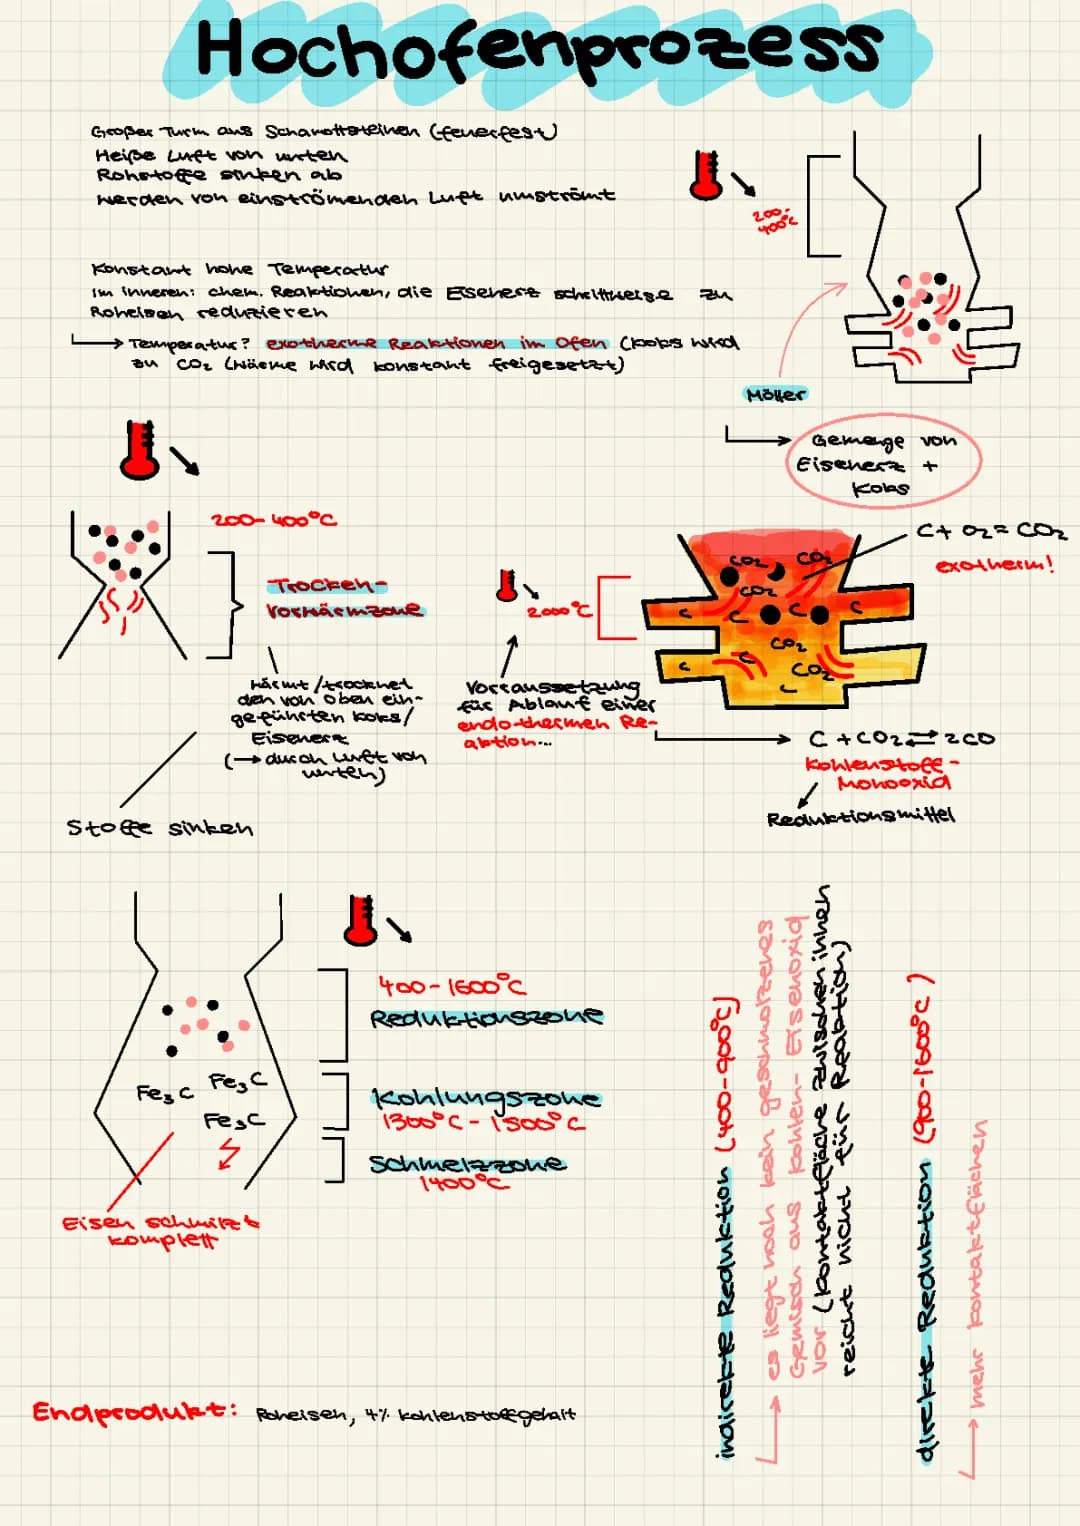 Hochofenprozess
Großer Turm aus Schamottsteinen (feuerfest)
Heiße Luft von unten
Rohstoffe sinken ab
werden von einströmenden Luft umströmt
200-
400°C
Konstant hohe Temperatur
Im inneren: chem. Reaktionen, die Eisenerz schrittweise zu
Roheisen reduzieren
→ Temperatur? exotherme Reaktionen im Ofen (Koks wird
zu CO₂ (Wärme wird konstant freigesetzt)
Möller
→ Gemenge von
Eisenerz +
Koks
200-400°C
Trocken-
Vorwärmzone
wärmt/trocknet
den von oben ein-
geführten Koks/
Eisenerz
(→ durch Luft von
unten)
Stoffe sinken
2000°C
Vorraussetzung
für Ablauf einer
endo-thermen Re-
aktion...
C + O₂ = CO₂
exotherm!
CO₂ CO₂
CO₂
C C C C
CO₂
C C CO₂
C
C + CO₂ ⇄ 2CO
Kohlenstoff-
Monooxid
Reduktionsmittel
400-1600°C
Reduktionszone
Fe₃C Fe₃C
Fe₃C
Kohlungszone
1300°C - 1500°C
Schmelzzone
1400°C
Eisen schmilzt
komplett
indirekte Reduktion (400-900°C)
→ es liegt noch kein geschmolzenes
Gemisch aus Kohlen- Eisenoxid
vor (Kontaktfläche zwischen ihnen
reicht nicht für Reaktion)
direkte Reduktion (900-1600°C)
→ mehr Kontaktflächen
Endprodukt: Roheisen, 4% Kohlenstoffgehalt